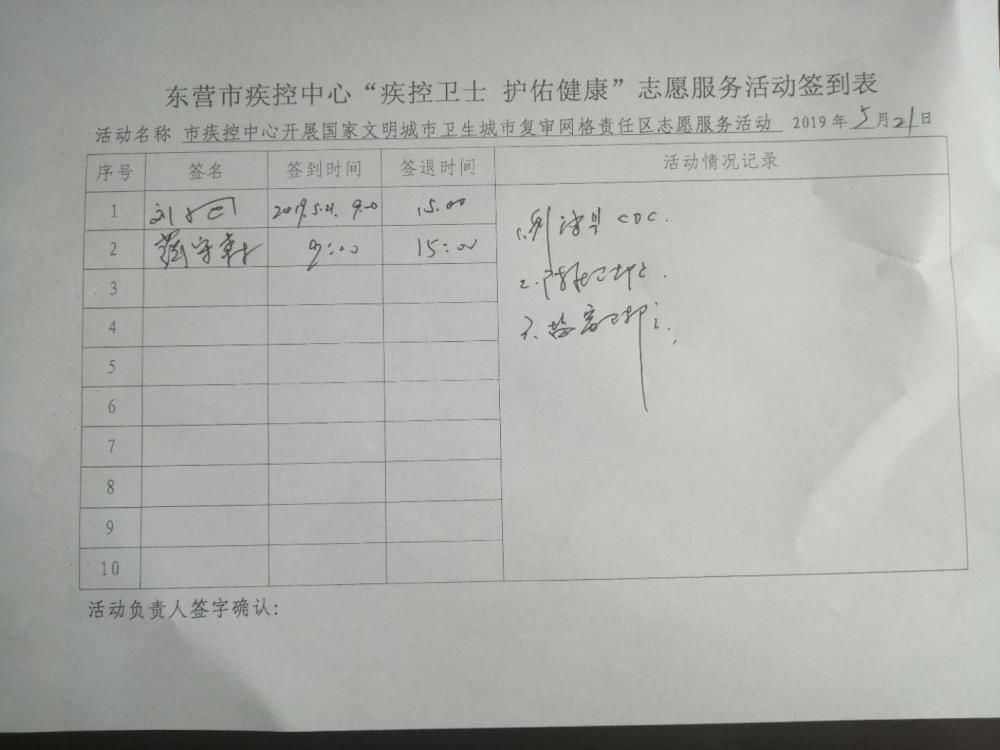 东营市疾控中心“疾控卫士 护佑健康”志愿服务活动签到表
活动名称 市疾控中心开展国家文明城市卫生城市复审网格责任区志愿服务活动 2019年5月21日
序号 签名 签到时间 签退时间 活动情况记录
1 刘 2019.5.21. 9:00 15:00
2 守 9:00 15:00
3
4
5
6
7
8
9
10
1. 到 CDC.
2.
3.
活动负责人签字确认: